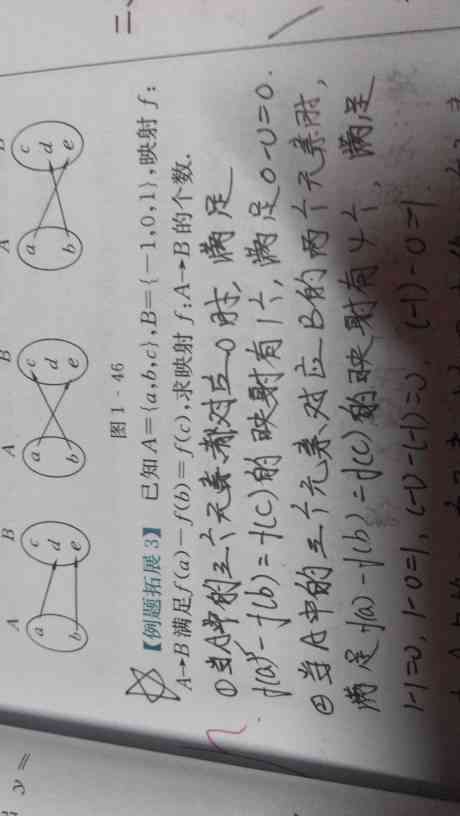 三、
A B A B A B
a b c d e a b c d e a b c d e
图1-46
【例题拓展3】 已知A={a,b,c},B={-1,0,1},映射f:
A→B满足f(a)-f(b)=f(c),求映射f:A→B的个数.
①当A中的三个元素都对应0时,满足
f(a)-f(b)=f(c)的映射有1个,满足0-0=0.
②当A中的三个元素对应B的两个元素时,
满足f(a)-f(b)=f(c)的映射有4个,满足
1-1=0, 1-0=1, (-1)-(-1)=0, (-1)-0=-1.
y=